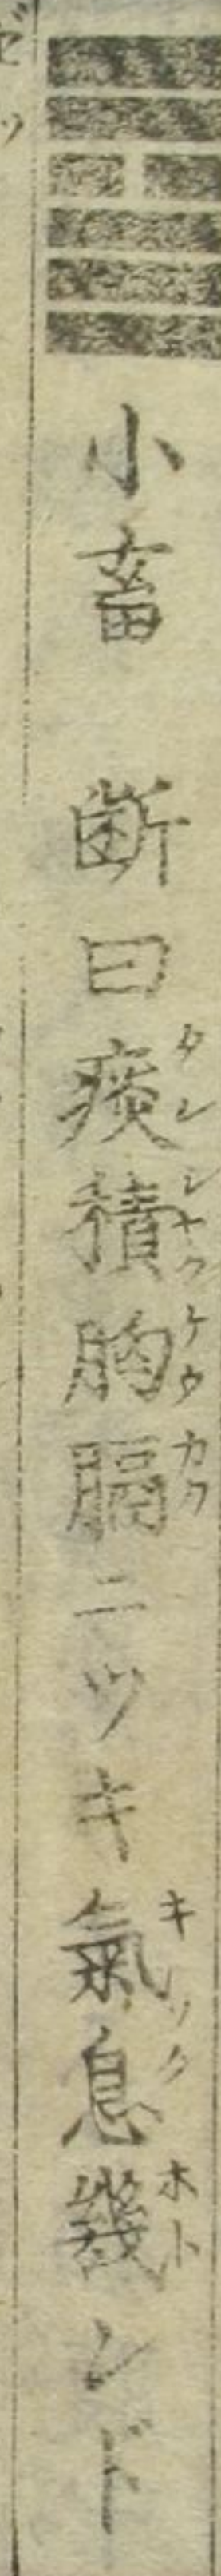 小畜 断曰痰積胸膈ニツキ氣息幾ンド